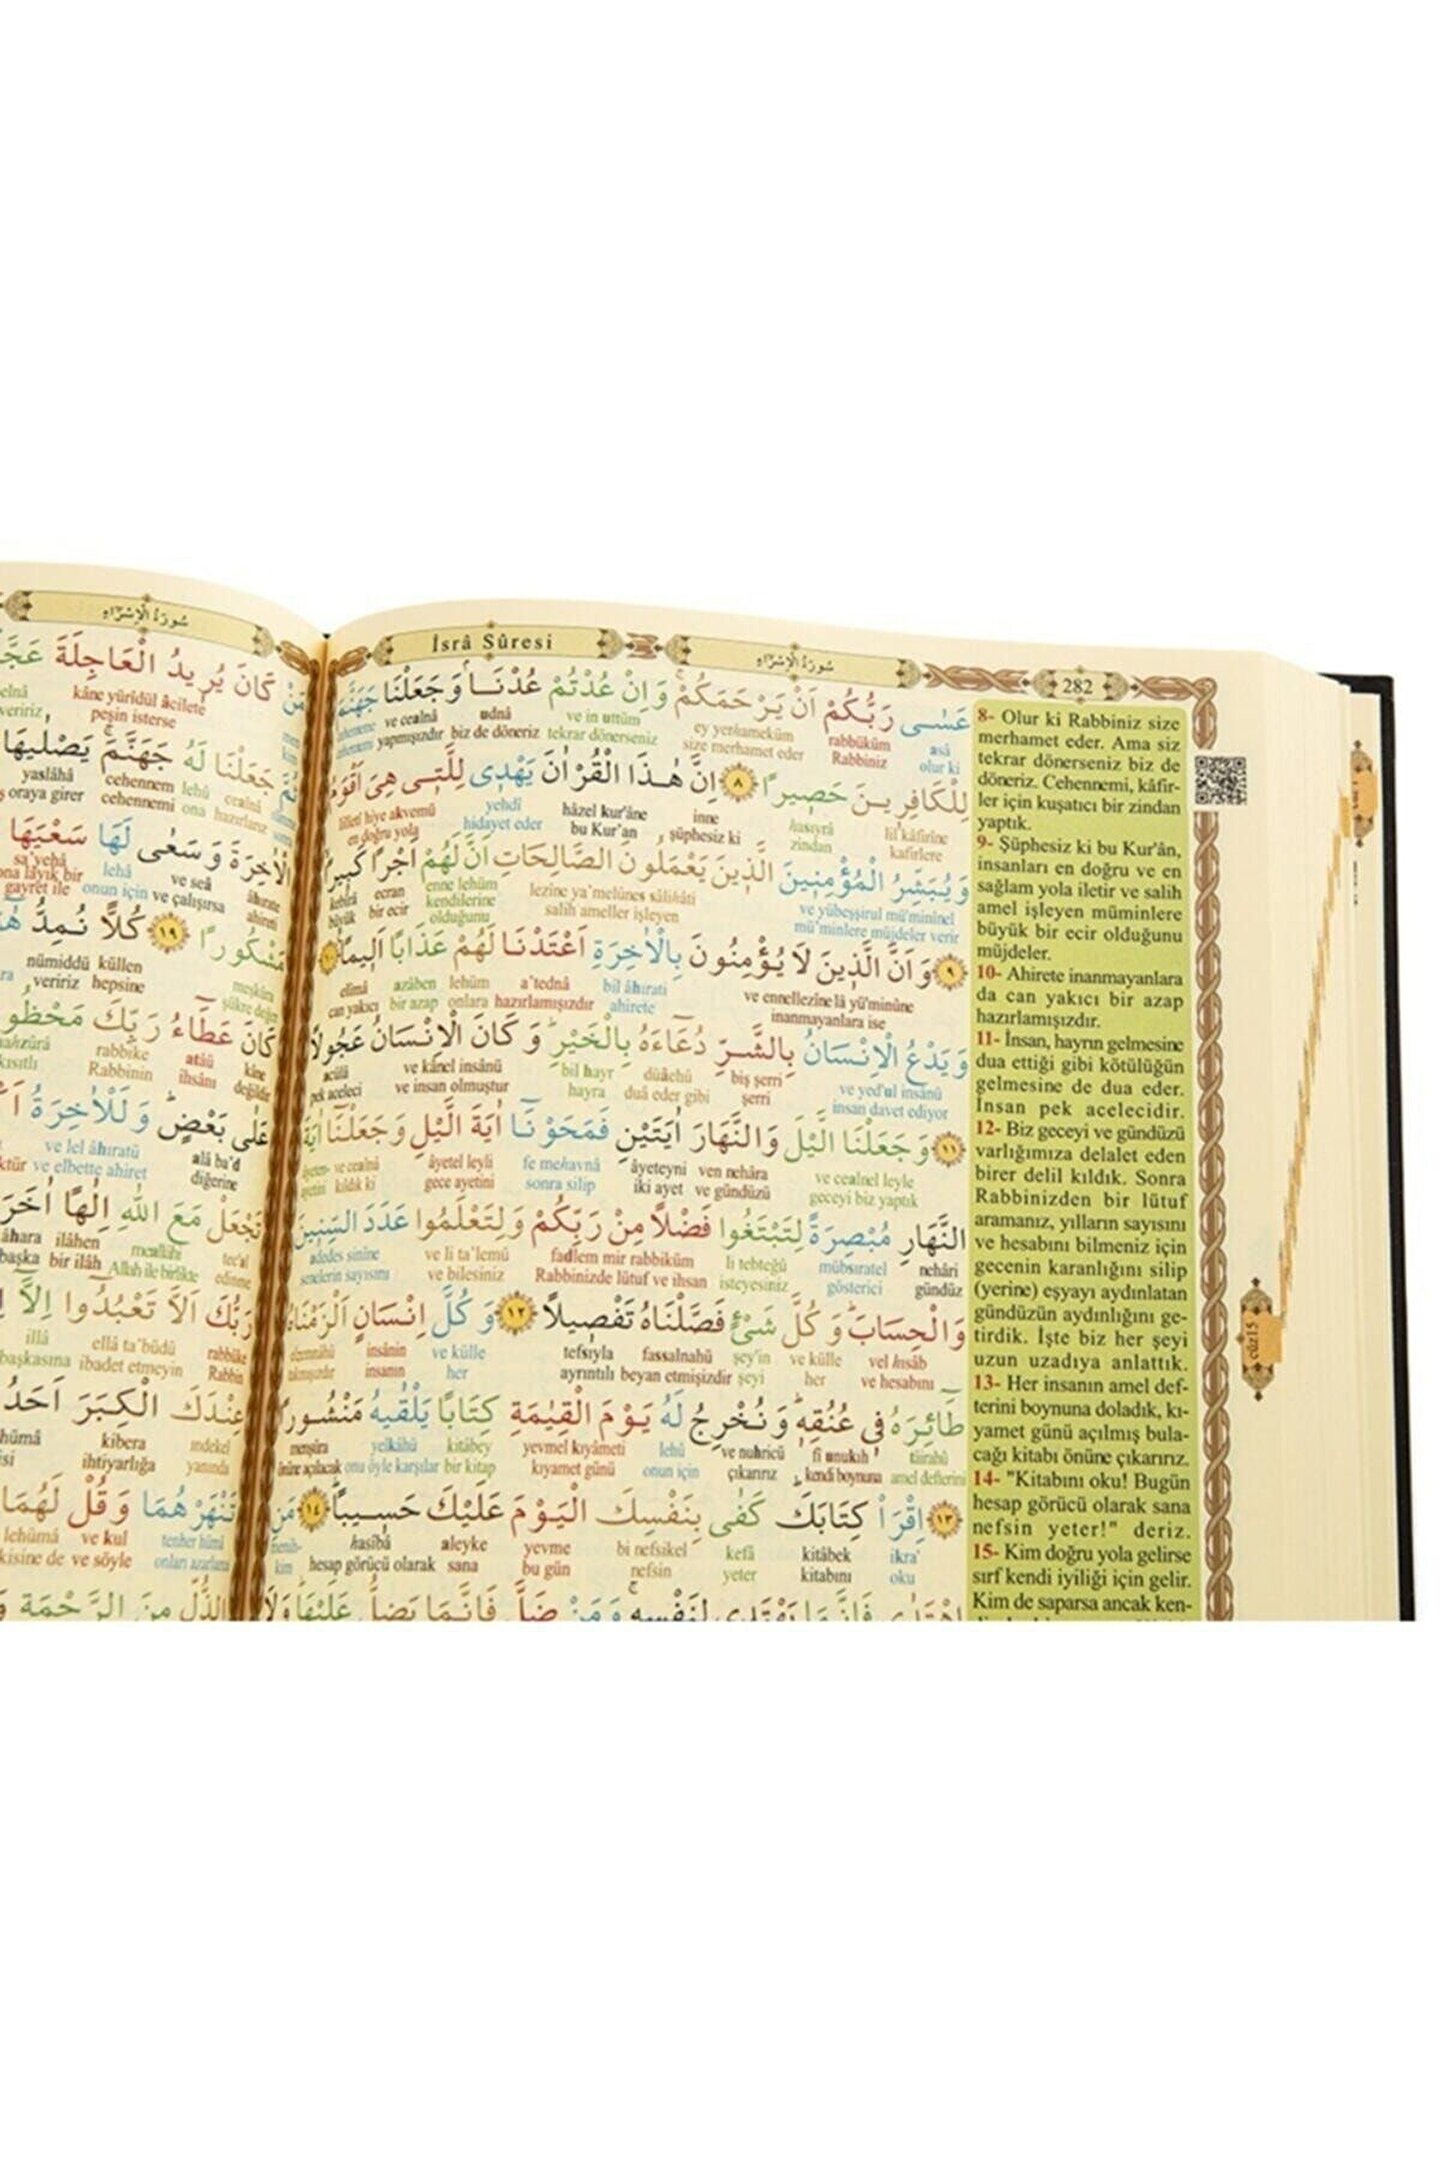 İsrâ Sûresi
سُورَةُ الْاِسْرَاءِ
282
عَسٰى رَبُّكُمْ اَنْ يَرْحَمَكُمْۚ وَاِنْ عُدْتُمْ عُدْنَاۢ وَجَعَلْنَا جَهَنَّمَ
asâ rabbüküm ey yerhameküm ve in uttüm udnâ ve cealnâ
olur ki Rabbiniz size merhamet eder tekrar dönerseniz biz de döneriz yapmışızdır
لِلْكَافِرِينَ حَصِيرًا ﴿٨﴾ اِنَّ هٰذَا الْقُرْاٰنَ يَهْدِى لِلَّتِى هِىَ اَقْوَمُ
lil kâfirîne hasıyrâ inne hâzel kur'âne yehdî lilletî hiye akvemü
kafirlere zindan şüphesiz ki bu Kur'an hidayet eder en doğru yola
وَيُبَشِّرُ الْمُؤْمِنِينَ الَّذِينَ يَعْمَلُونَ الصَّالِحَاتِ اَنَّ لَهُمْ اَجْرًا كَبِيرًا
ve yübeşşirul mü'minînel lezîne ya'melûnes sâlihâti enne lehüm ecran kebîrâ
mü'minlere müjdeler verir salih ameller işleyen kendilerine olduğunu bir ecir büyük
﴿٩﴾ وَاَنَّ الَّذِينَ لَا يُؤْمِنُونَ بِالْاٰخِرَةِ اَعْتَدْنَا لَهُمْ عَذَابًا اَلِيمًا
ve ennellezîne lâ yü'minûne bil âhırati a'tednâ lehüm azâben elîmâ
inanmayanlara ise ahirete hazırlamışızdır onlara bir azap can yakıcı
وَيَدْعُ الْاِنْسَانُ بِالشَّرِّ دُعَاءَهُ بِالْخَيْرِ وَكَانَ الْاِنْسَانُ عَجُولًا
ve yed'ul insânü biş şerri düâehû bil hayr ve kânel insânü acûlâ
insan davet ediyor şerri duâ eder gibi hayra ve insan olmuştur pek aceleci
﴿١١﴾ وَجَعَلْنَا الَّيْلَ وَالنَّهَارَ اٰيَتَيْنِ فَمَحَوْنَا اٰيَةَ الَّيْلِ وَجَعَلْنَا اٰيَةَ
ve cealnel leyle ven nehâra âyeteyni fe mehavnâ âyetel leyli ve cealnâ
geceyi biz yaptık ve gündüzü iki ayet sonra silip gece ayetini kıldık ki
النَّهَارِ مُبْصِرَةً لِتَبْتَغُوا فَضْلًا مِنْ رَبِّكُمْ وَلِتَعْلَمُوا عَدَدَ السِّنِينَ
nehâri mübsıratel li tebteğû fadlem mir rabbiküm ve li ta'lemû adedes sinîne
gündüz gösterici isteyesiniz Rabbinizde lütuf ve ihsan ve bilesiniz senelerin sayısını
وَالْحِسَابَ وَكُلَّ شَىْءٍ فَصَّلْنَاهُ تَفْصِيلًا ﴿١٢﴾ وَكُلَّ اِنْسَانٍ اَلْزَمْنَاهُ
vel hısâb ve külle şey'in fassalnahü tefsıyla ve külle insânin elzemnâhü
ve hesabını her şeyi beyan etmişizdir ayrıntılı her insanın
طَائِرَهُ فِى عُنُقِهِ وَنُخْرِجُ لَهُ يَوْمَ الْقِيٰمَةِ كِتَابًا يَلْقٰيهُ مَنْشُورًا
tâirahû fî unukıh ve nuhricü lehû yevmel kıyâmeti kitâbey yelkâhü menşûra
amel defterini kendi boynuna çıkarırız onun için kıyamet günü bir kitap onu öyle karşılar önüne açılacak
﴿١٣﴾ اِقْرَأْ كِتَابَكَ كَفٰى بِنَفْسِكَ الْيَوْمَ عَلَيْكَ حَسِيبًا ﴿١٤﴾ مَنِ
ikra' kitâbek kefâ bi nefsikel yevme aleyke hasîbâ
oku kitabını yeter nefsin bu gün sana hesap görücü olarak kim
8- Olur ki Rabbiniz size
merhamet eder. Ama siz
tekrar dönerseniz biz de
döneriz. Cehennemi, kâfir-
ler için kuşatıcı bir zindan
yaptık.
9- Şüphesiz ki bu Kur'ân,
insanları en doğru ve en
sağlam yola iletir ve salih
amel işleyen müminlere
büyük bir ecir olduğunu
müjdeler.
10- Ahirete inanmayanlara
da can yakıcı bir azap
hazırlamışızdır.
11- İnsan, hayrın gelmesine
dua ettiği gibi kötülüğün
gelmesine de dua eder.
İnsan pek acelecidir.
12- Biz geceyi ve gündüzü
varlığımıza delalet eden
birer delil kıldık. Sonra
Rabbinizden bir lütuf
aramanız, yılların sayısını
ve hesabını bilmeniz için
gecenin karanlığını silip
(yerine) eşyayı aydınlatan
gündüzün aydınlığını ge-
tirdik. İşte biz her şeyi
uzun uzadıya anlattık.
13- Her insanın amel def-
terini boynuna doladık, kı-
yamet günü açılmış bula-
cağı kitabı önüne çıkarırız.
14- "Kitabını oku! Bugün
hesap görücü olarak sana
nefsin yeter!" deriz.
15- Kim doğru yola gelirse
sırf kendi iyiliği için gelir.
Kim de saparsa ancak ken-
cüz15
سُورَةُ الْاِسْرَاءِ
مَنْ كَانَ يُرِيدُ الْعَاجِلَةَ
kâne yürîdül âcilete
peşin isterse
جَعَلْنَا لَهُ جَهَنَّمَ يَصْلٰيهَا
cealnâ lehû cehenneme yaslâhâ
ona cehennemi oraya girer
الْاٰخِرَةَ وَسَعٰى لَهَا سَعْيَهَا
ve seâ lehâ sa'yehâ
ve çalışırsa onun için gayret ile
مَشْكُورًا ﴿١٩﴾ كُلًّا نُمِدُّ
meşkûra küllen nümiddü
hepsine veririz
كَانَ عَطَاءُ رَبِّكَ
kâne atâü rabbike
değildir ihsânı Rabbinin
عَلٰى بَعْضٍ وَلَلْاٰخِرَةُ
alâ ba'd ve lel âhıratü
diğerine ve elbette ahiret
تَجْعَلْ مَعَ اللّٰهِ اِلٰهًا اٰخَرَ
tec'al meallâhi ilâhen âhara
edinme Allah ile birlikte bir ilâh başka
رَبُّكَ اَلَّا تَعْبُدُوا اِلَّا
rabbüke ellâ ta'büdû illâ
Rabbin ibadet etmeyin başkasına
عِنْدَكَ الْكِبَرَ
ındekel kibera
yanında ihtiyarlığa
تَنْهَرْهُمَا وَقُلْ لَهُمَا
tenher hümâ ve kul lehümâ
onları azarlama ve söyle